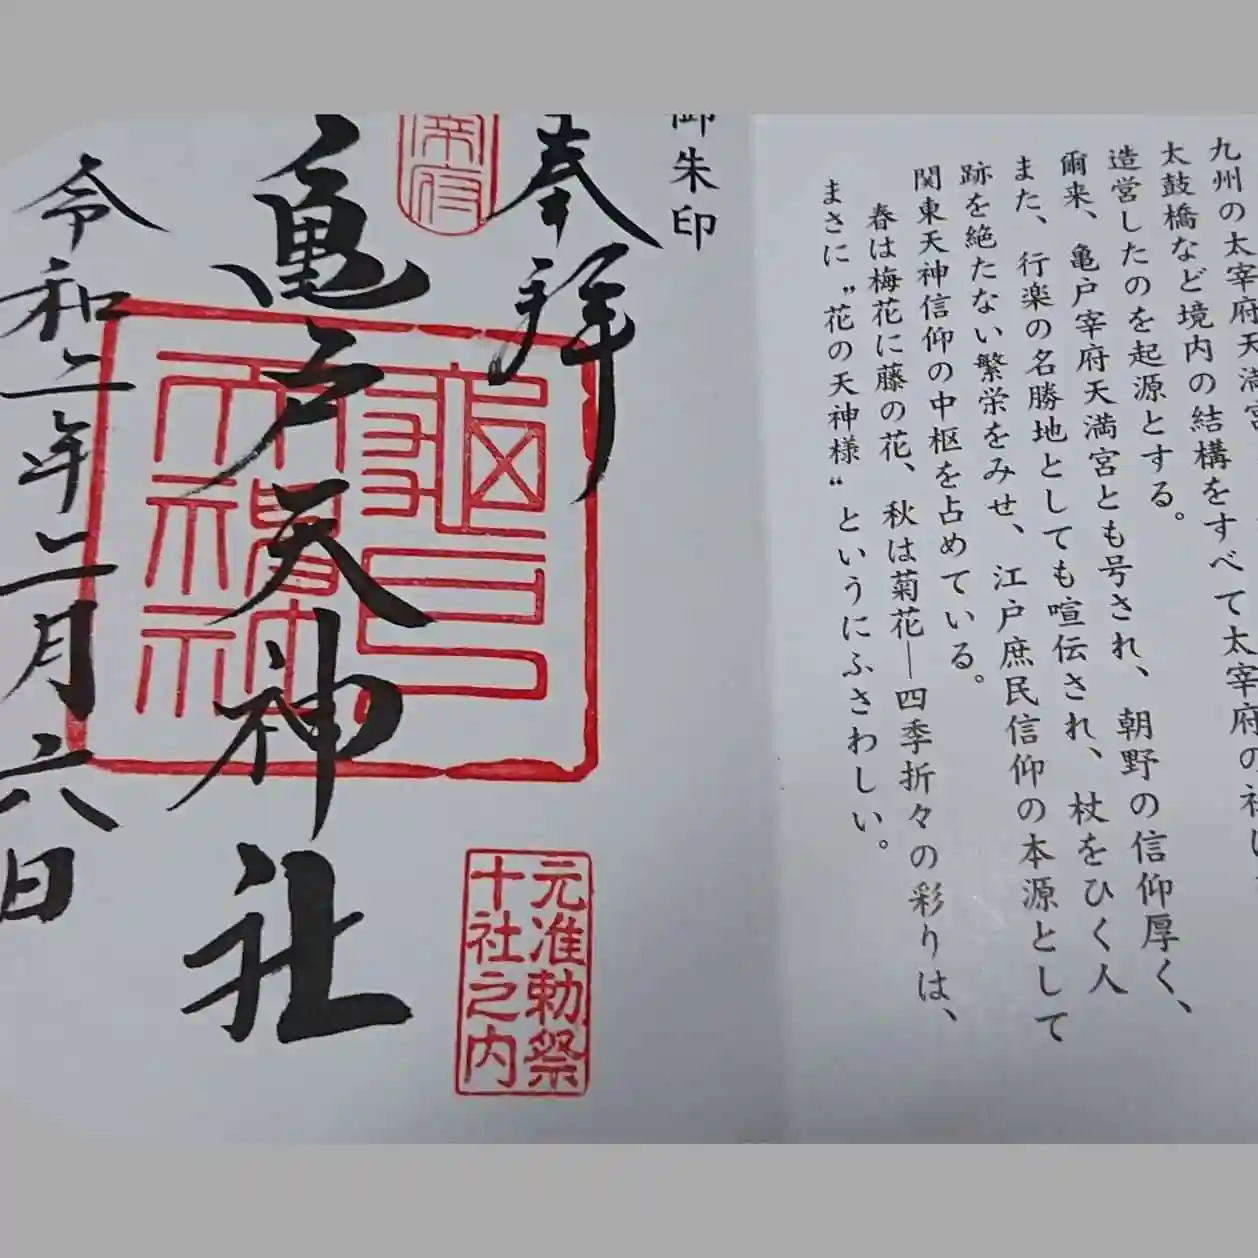 九州の太宰府天満宮
太鼓橋など境内の結構をすべて太宰府の社に
造営したのを起源とする。
爾来、亀戸宰府天満宮とも号され、朝野の信仰厚く、
また、行楽の名勝地としても喧伝され、杖をひく人
跡を絶たない繁栄をみせ、江戸庶民信仰の本源として
関東天神信仰の中枢を占めている。
春は梅花に藤の花、秋は菊花―四季折々の彩りは、
まさに〝花の天神様〟というにふさわしい。
御朱印
奉拝
宰府
亀戸天神社
令和二年二月六日
元准勅祭
十社之内